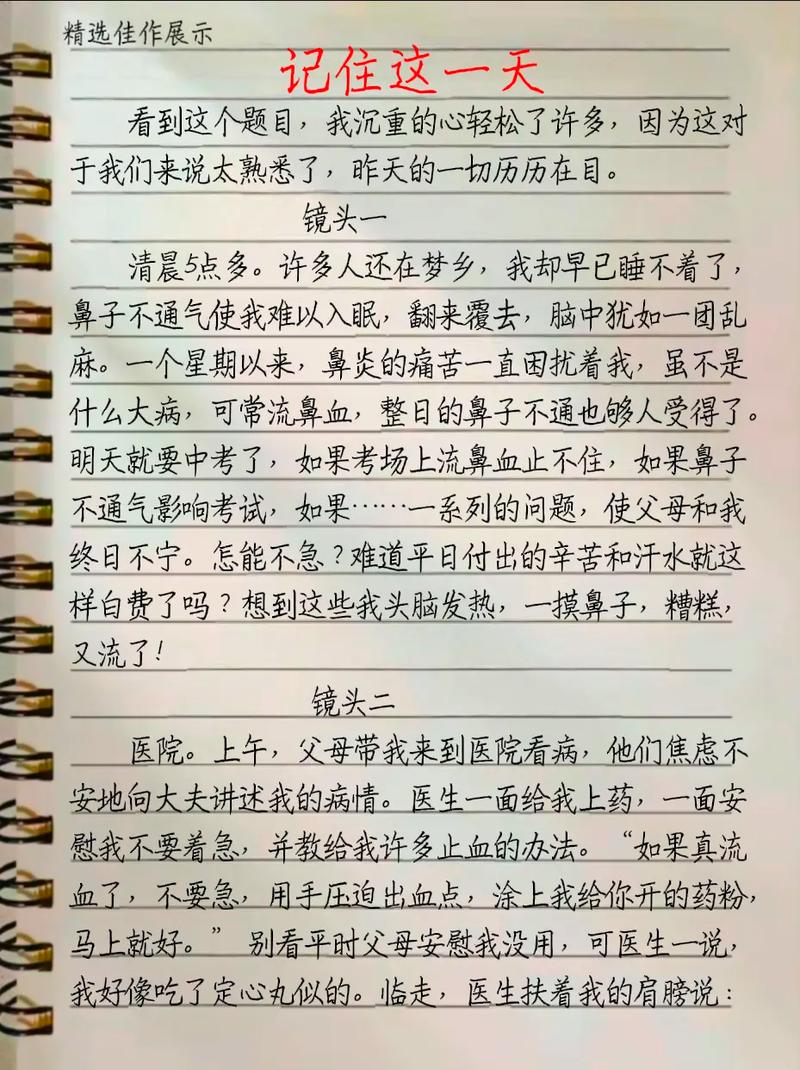 精选佳作展示
记住这一天
看到这个题目，我沉重的心轻松了许多，因为这对
于我们来说太熟悉了，昨天的一切历历在目。
镜头一
清晨5点多。许多人还在梦乡，我却早已睡不着了，
鼻子不通气使我难以入眠，翻来覆去，脑中犹如一团乱
麻。一个星期以来，鼻炎的痛苦一直困扰着我，虽不是
什么大病，可常流鼻血，整日的鼻子不通也够人受得了。
明天就要中考了，如果考场上流鼻血止不住，如果鼻子
不通气影响考试，如果……一系列的问题，使父母和我
终日不宁。怎能不急？难道平日付出的辛苦和汗水就这
样白费了吗？想到这些我头脑发热，一摸鼻子，糟糕，
又流了！
镜头二
医院。上午，父母带我来到医院看病，他们焦虑不
安地向大夫讲述我的病情。医生一面给我上药，一面安
慰我不要着急，并教给我许多止血的办法。“如果真流
血了，不要急，用手压迫出血点，涂上我给你开的药粉，
马上就好。” 别看平时父母安慰我没用，可医生一说，
我好像吃了定心丸似的。临走，医生扶着我的肩膀说：